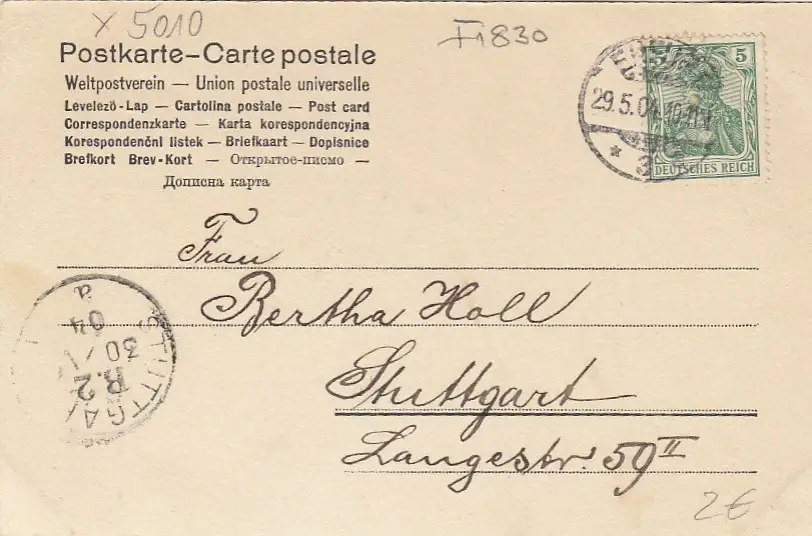 x 5010
Fi 830
Postkarte—Carte postale
Weltpostverein — Union postale universelle
Levelező-Lap — Cartolina postale — Post card
Correspondenzkarte — Karta korespondencyjna
Korespondenční lístek — Briefkaart — Dopisnice
Brefkort Brev-Kort — Открытое-письмо —
Дописна карта
5
29.5.04.
* 3
DEUTSCHES REICH
Frau
Bertha Holl
Stuttgart
Langestr. 59 II
STUTTGA
B.2
30/
04
a
2€